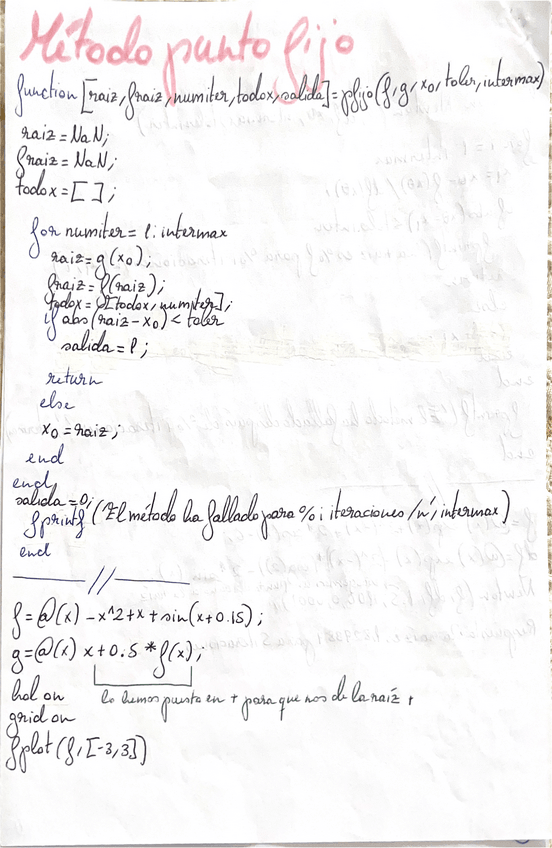 Método punto fijo
function [raiz, fraiz, numiter, todox, salida] = pfijo(f, g, x0, toler, intermax)
raiz = NaN;
fraiz = NaN;
todox = [ ];
for numiter = 1: intermax
raiz = g(x0);
fraiz = f(raiz);
todox = [todox, numiter];
if abs(raiz - x0) < toler
salida = 1;
return
else
x0 = raiz;
end
end
salida = 0;
fprintf ('El método ha fallado para %i iteraciones /n', intermax)
end
//
f = @(x) -x^2+x+sin(x+0.15);
g = @(x) x+0.5 * f(x);
lo hemos puesto en + para que nos de la raíz +
hol on
grid on
fplot (f, [-3,3])